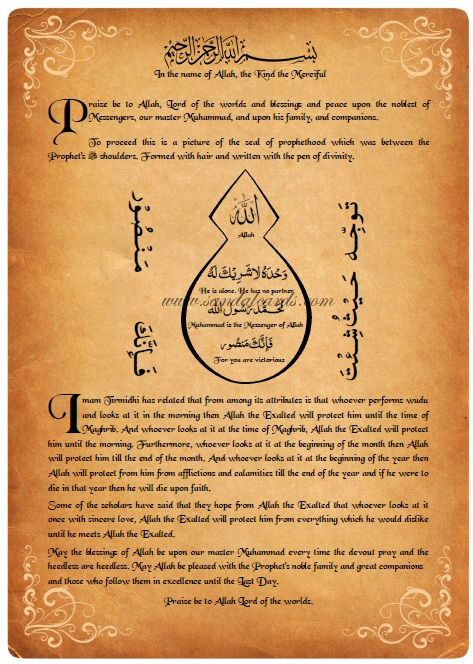 بِسْمِ اللهِ الرَّحْمٰنِ الرَّحِيْمِ
In the name of Allah, the Kind the Merciful
Praise be to Allah, Lord of the worlds and blessings and peace upon the noblest of
Messengers, our master Muhammad, and upon his family, and companions.
To proceed this is a picture of the seal of prophethood which was between the
Prophet's ﷺ shoulders. Formed with hair and written with the pen of divinity.
تَوَجَّه حَيْثُ شِئْتَ
فَإِنَّكَ مَنْصُوْر
الله
Allah
وَحْدَهُ لَا شَرِيْكَ لَهُ
He is alone. He has no partner.
www.sandalcards.com
مُحَمَّدٌ رَسُوْلُ الله
Muhammad is the Messenger of Allah
فَإِنَّكَ مَنْصُور
For you are victorious
Imam Tirmidhi has related that from among its attributes is that whoever performs wudu
and looks at it in the morning then Allah the Exalted will protect him until the time of
Maghrib. And whoever looks at it at the time of Maghrib, Allah the Exalted will protect
him until the morning. Furthermore, whoever looks at it at the beginning of the month then Allah
will protect him till the end of the month. And whoever looks at it at the beginning of the year then
Allah will protect from him from afflictions and calamities till the end of the year and if he were to
die in that year then he will die upon faith.
Some of the scholars have said that they hope from Allah the Exalted that whoever looks at it
once with sincere love, Allah the Exalted will protect him from everything which he would dislike
until he meets Allah the Exalted.
May the blessings of Allah be upon our master Muhammad every time the devout pray and the
heedless are heedless. May Allah be pleased with the Prophet's noble family and great companions
and those who follow them in excellence until the Last Day.
Praise be to Allah Lord of the worlds.